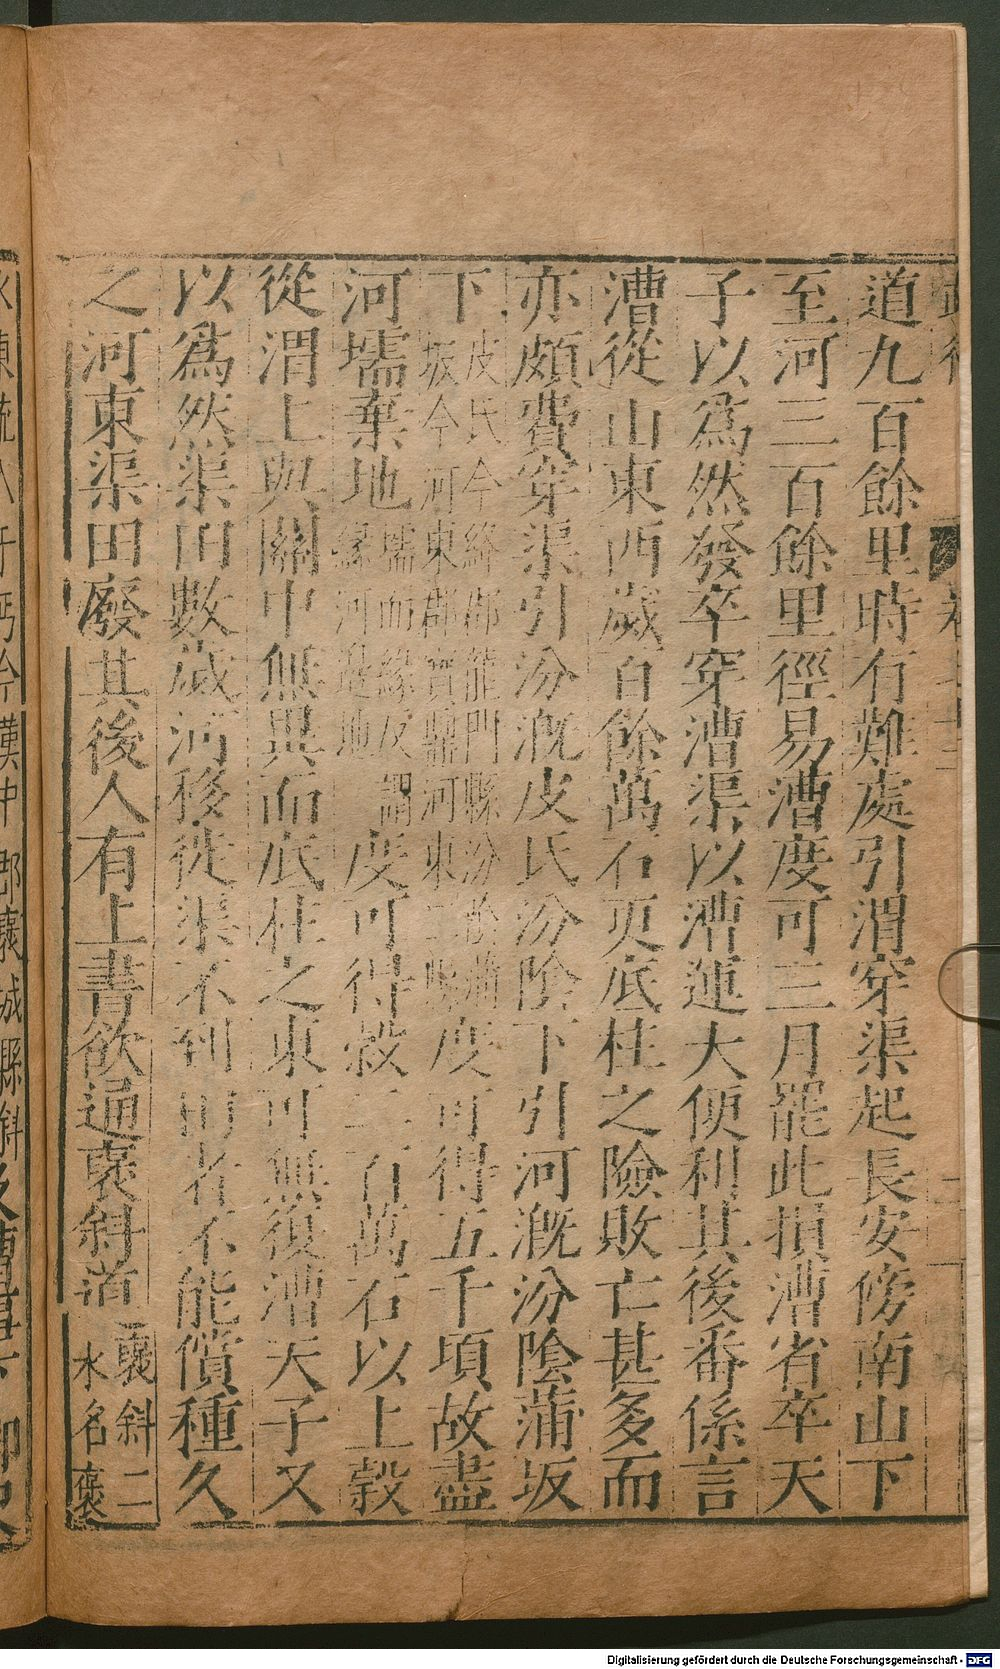 道九百餘里時有難處引渭穿渠起長安傍南山下
至河三百餘里徑易漕度可三月罷此損漕省卒天
子以爲然發卒穿漕渠以漕運大便利其後番係言
漕從山東西歲百餘萬石更底柱之險敗亡甚多而
亦頗費穿渠引汾漑皮氏汾陰下引河漑汾陰蒲坂
下皮氏今絳郡龍門縣汾陰蒲坂今河東郡寶鼎河東二縣度可得五千頃故盡
河壖棄地壖而緣反謂緣河邊地度可得穀二百萬石以上穀
從渭上與關中無異而底柱之東可無復漕天子又
以爲然渠田數歲河移徙渠不到田者不能償種久
之河東渠田廢其後人有上書欲通褒斜道褒斜二水名褒
水東流入于沔今漢中郡褒城縣斜
Digitalisierung gefördert durch die Deutsche Forschungsgemeinschaft - DFG